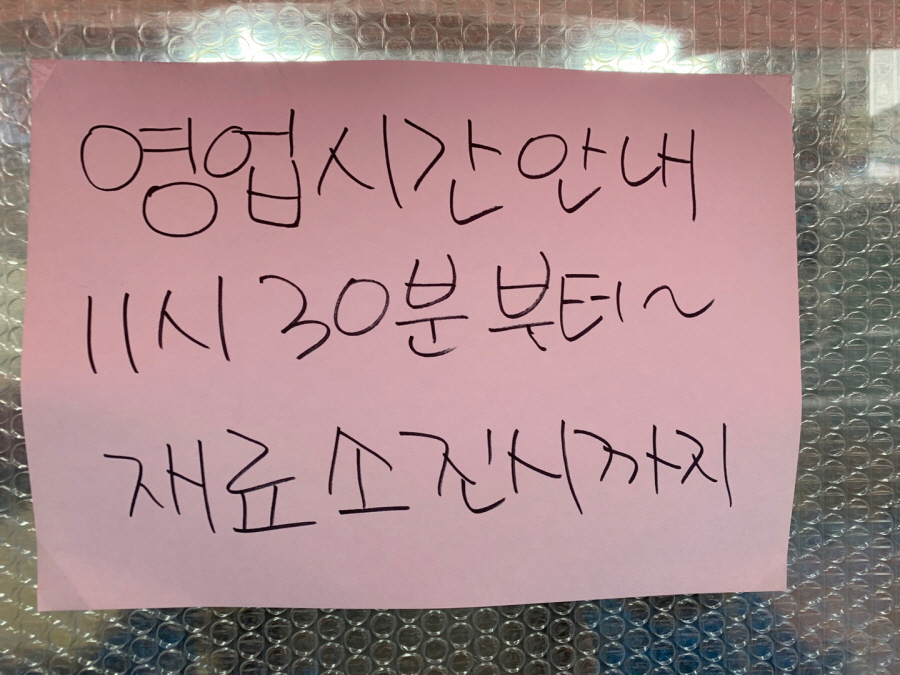 영업시간 안내
11시 30분 부터~
재료 소진시까지